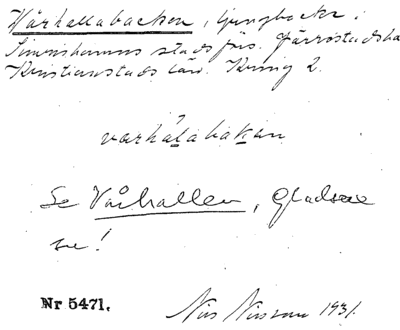 Vårhallabacken, ljungbacke i
Simrishamns stads förs. Järrestads hd
Kristianstads län. Kring 2.
varhạ́lạbakan
Se Vårhallen, Gladsax
sn!
Nr 5471.
Nils Nilsson 1931.